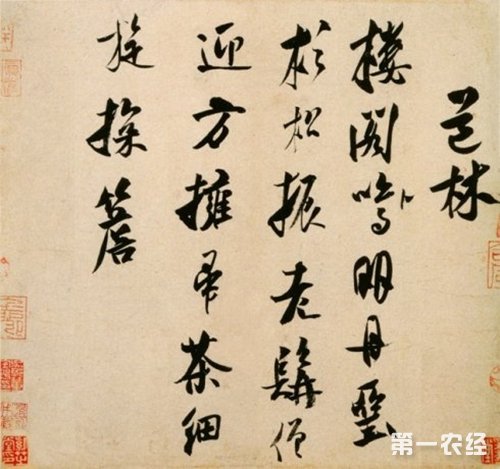 道林
樓閣鳴明丹堊
杉松振老髯僧
迎方擁帚茶細
旋探簷
第一农经